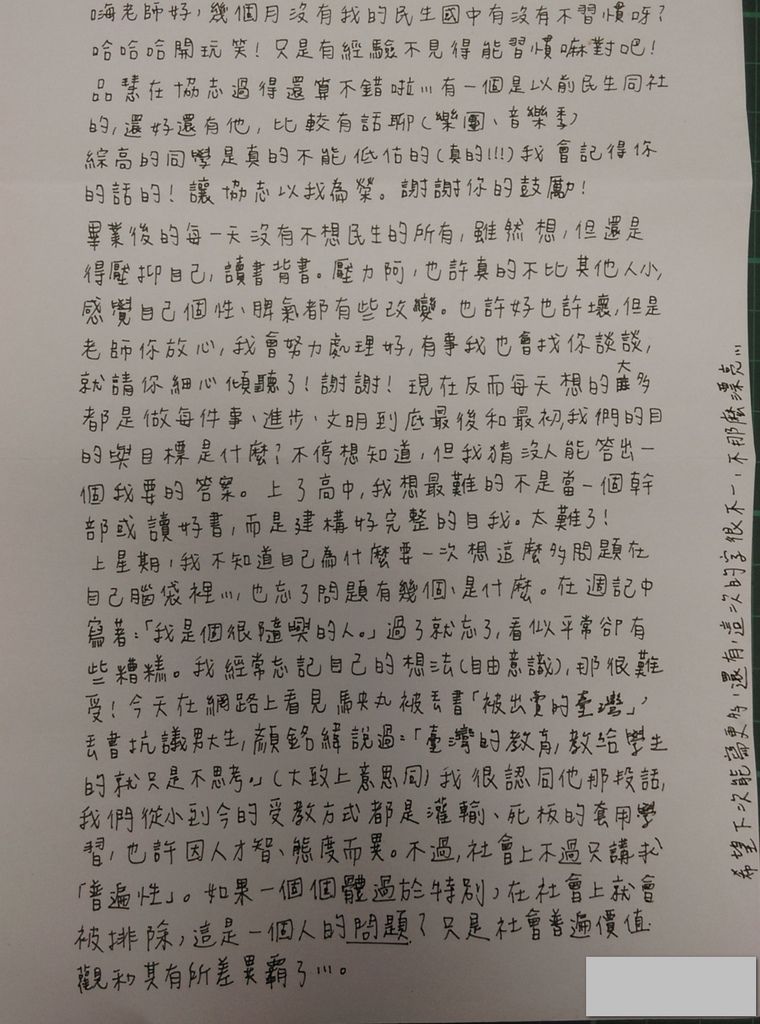 嗨老師好，幾個月沒有我的民生國中有沒有不習慣呀？
哈哈哈開玩笑！只是有經驗不見得能習慣嘛對吧！
品慧在協志過得還算不錯啦…有一個是以前民生同社
的，還好還有他，比較有話聊（樂團、音樂季）
綜高的同學是真的不能低估的（真的!!!）我會記得你
的話的！讓協志以我為榮。謝謝你的鼓勵！
畢業後的每一天沒有不想民生的所有，雖然想，但還是
得壓抑自己，讀書背書。壓力阿，也許真的不比其他人小，
感覺自己個性、脾氣都有些改變。也許好也許壞，但是
老師你放心，我會努力處理好，有事我也會找你談談，
就請你細心傾聽了！謝謝！現在反而每天想的大多
都是做每件事、進步、文明到底最後和最初，我們的目
的與目標是什麼？不停想知道，但我猜沒人能答出一
個我要的答案。上了高中，我想最難的不是當一個幹
部或讀好書，而是建構好完整的自我。太難了！
上星期，我不知道自己為什麼要一次想這麼多問題在
自己腦袋裡…，也忘了問題有幾個、是什麼。在週記中
寫著：「我是個很隨興的人。」過了就忘了，看似平常卻有
些糟糕。我經常忘記自己的想法（自由意識），那很難
受！今天在網路上看見馬英九被丟書「被出賣的臺灣」，
丟書抗議男大生，顏銘緯說過：「臺灣的教育，教給學生
的就只是不思考。」（大致上意思同）我很認同他那段話，
我們從小到今的受教方式都是灌輸、死板的套用學
習，也許因人才智、態度而異。不過，社會上不過只講求
「普遍性」。如果一個個體過於特別，在社會上就會
被排除，這是一個人的問題？只是社會普遍價值
觀和其有所差異罷了…。
希望下次能寫更多，還有，這次的字很不一，不那麼漂亮…